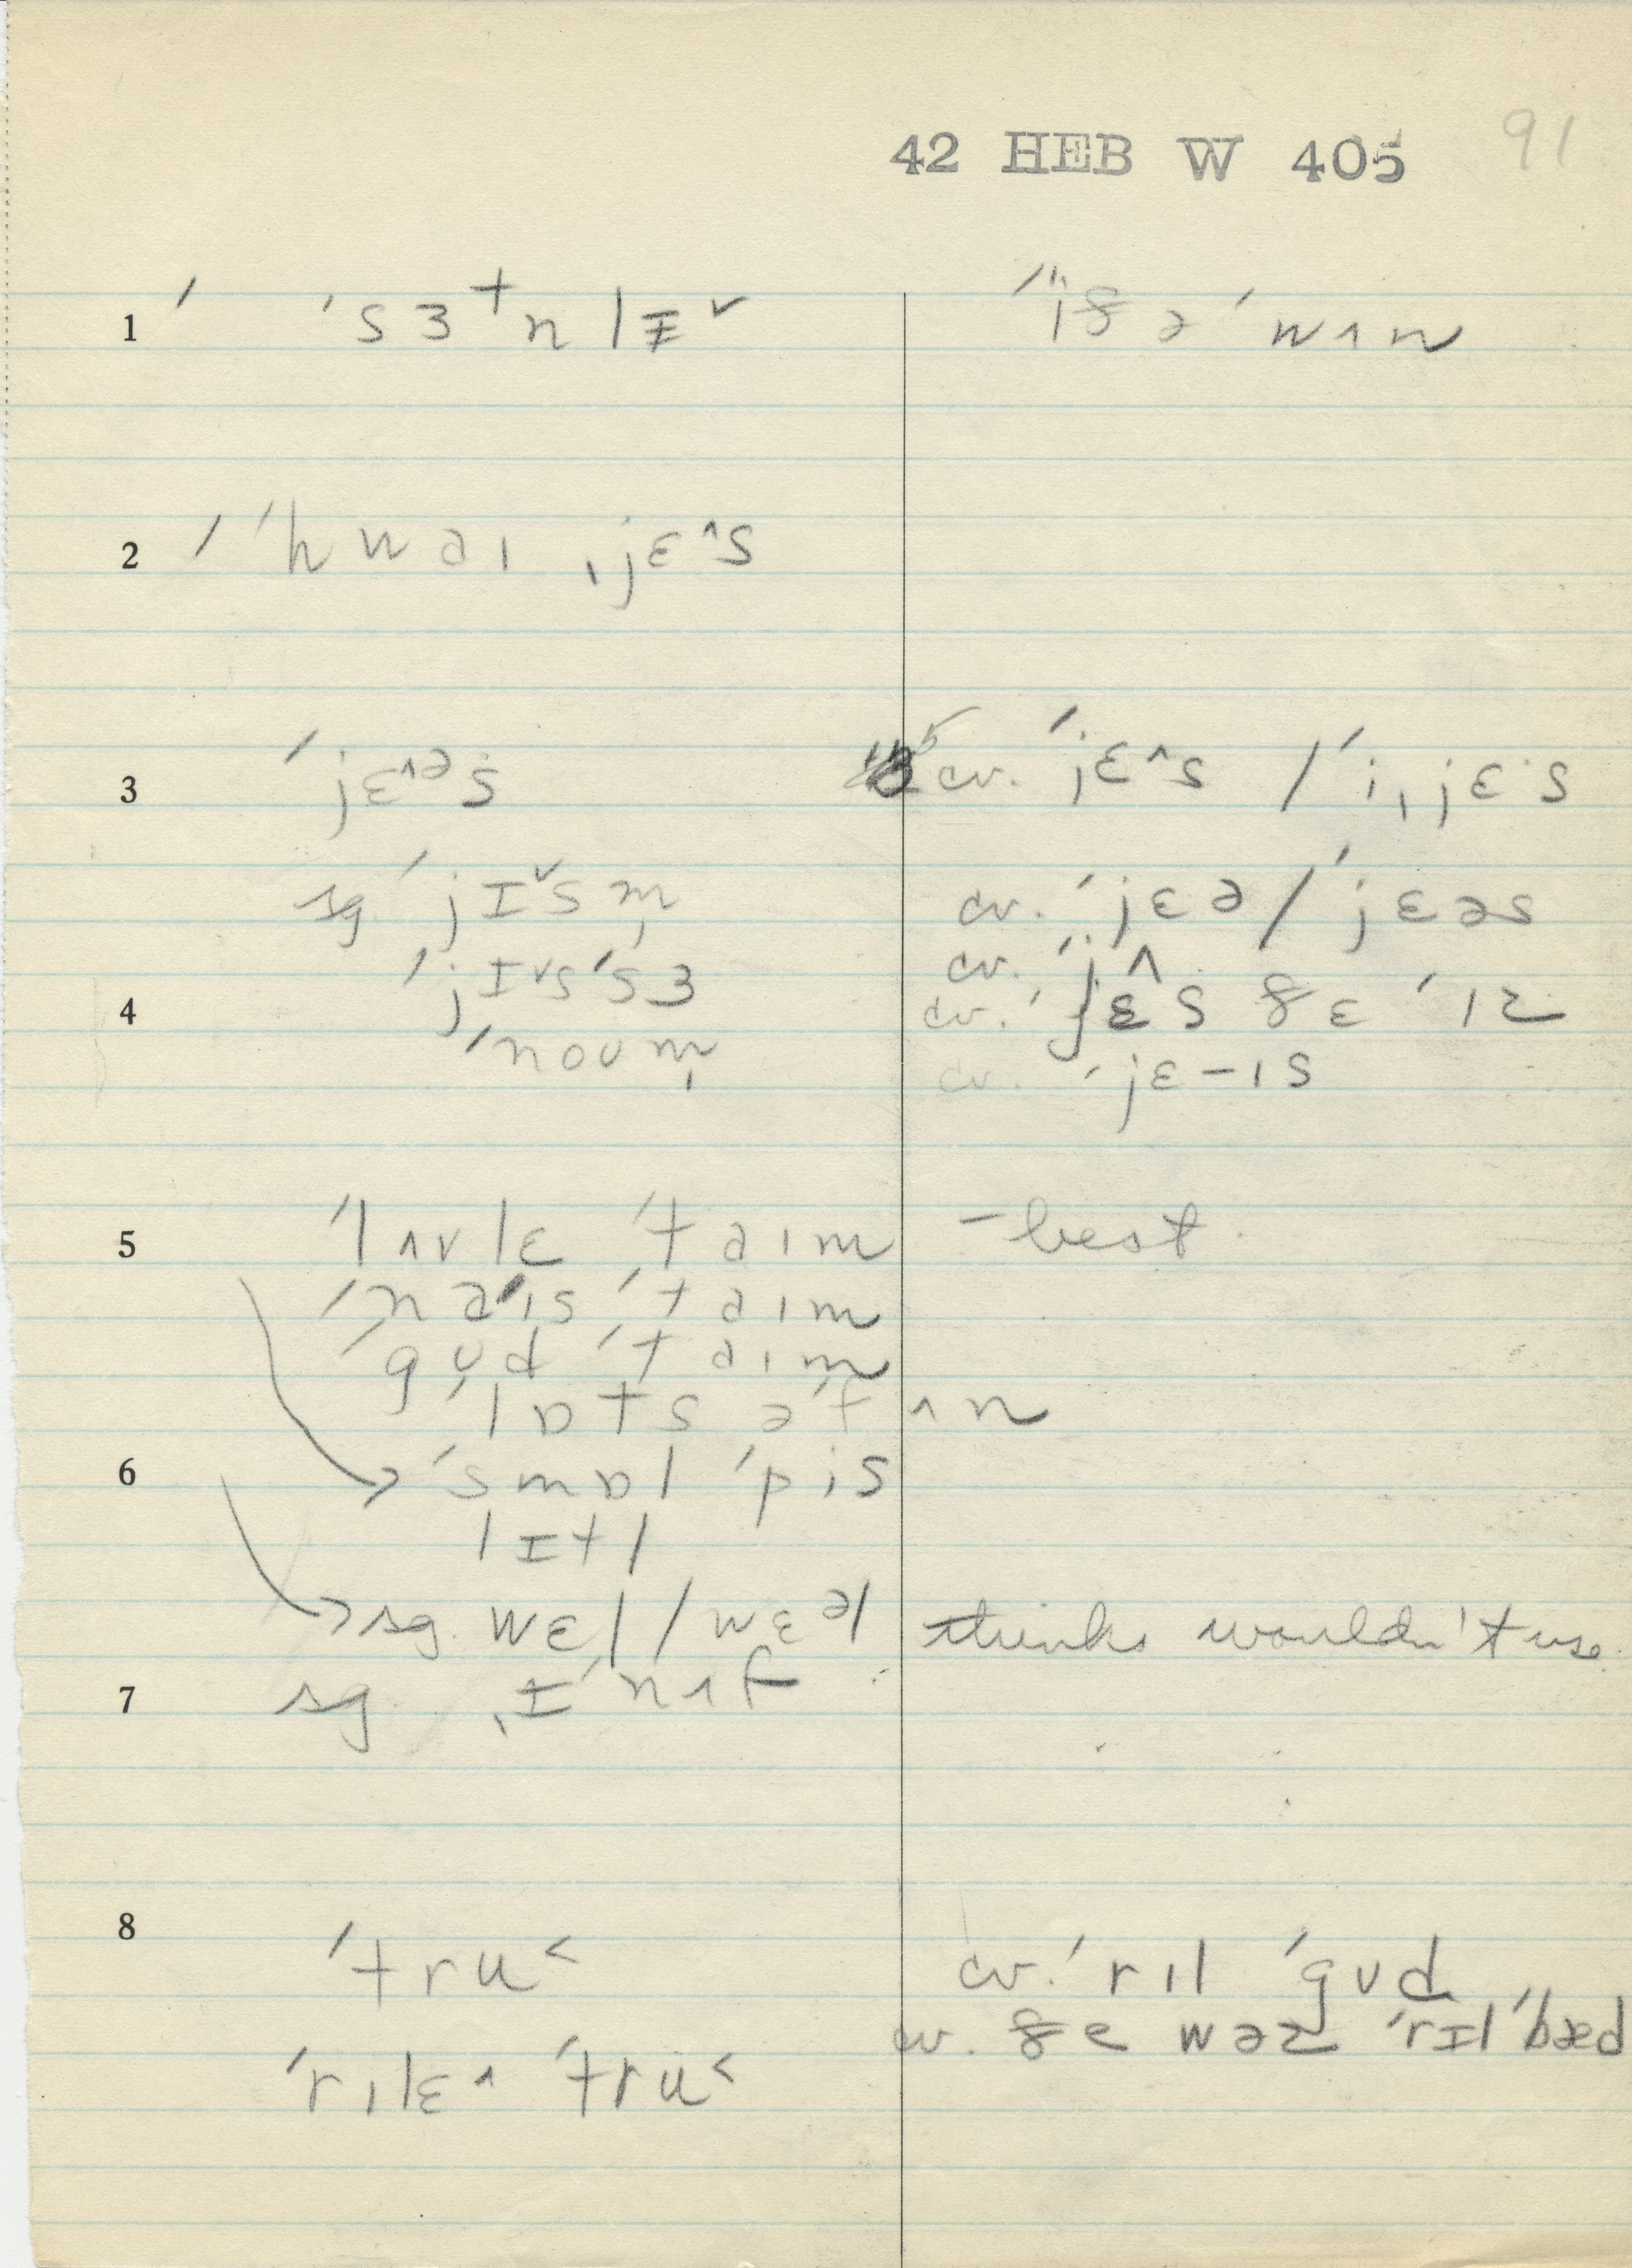 42 HEB W 405 91
1 ˈ ˈsɜ⁺nlɪ̵ˇ ˈïðəˈwʌn
2 ˈ ˈhwaɪ ˌjɛ^s
3 ˈjɛ^ᵊṡ cv. ˈjɛ^s / ˈiˌjɛ·s
sg ˈjɪˇsm̩ cv. ˈjɛə/ˈjɛəs
ˈjɪˇsˈsɜ cv. ˈj^
4 cv. ˈjɛs ðɛ ˈɪz
ˈnoʊm̩ cv. ˈjɛ-ɪs
5 ˈlʌvlɛ ˈtaɪm - best
ˈnaɪs ˈtaɪm
ˈgʊd ˈtaɪm
ˈlɒts əˈfʌn
6 → ˈsmɒl ˈpis
lɪtl
→ sg. wɛl / wɛᵊl thinks wouldn't use
7 sg. ˌɪˈnʌf
8 ˈtru˂ cv. ˈrɪl ˈgʊd
cv. ðɛ wəz ˈrɪl ˈbæd
ˈrɪlɛ^ ˈtru˂